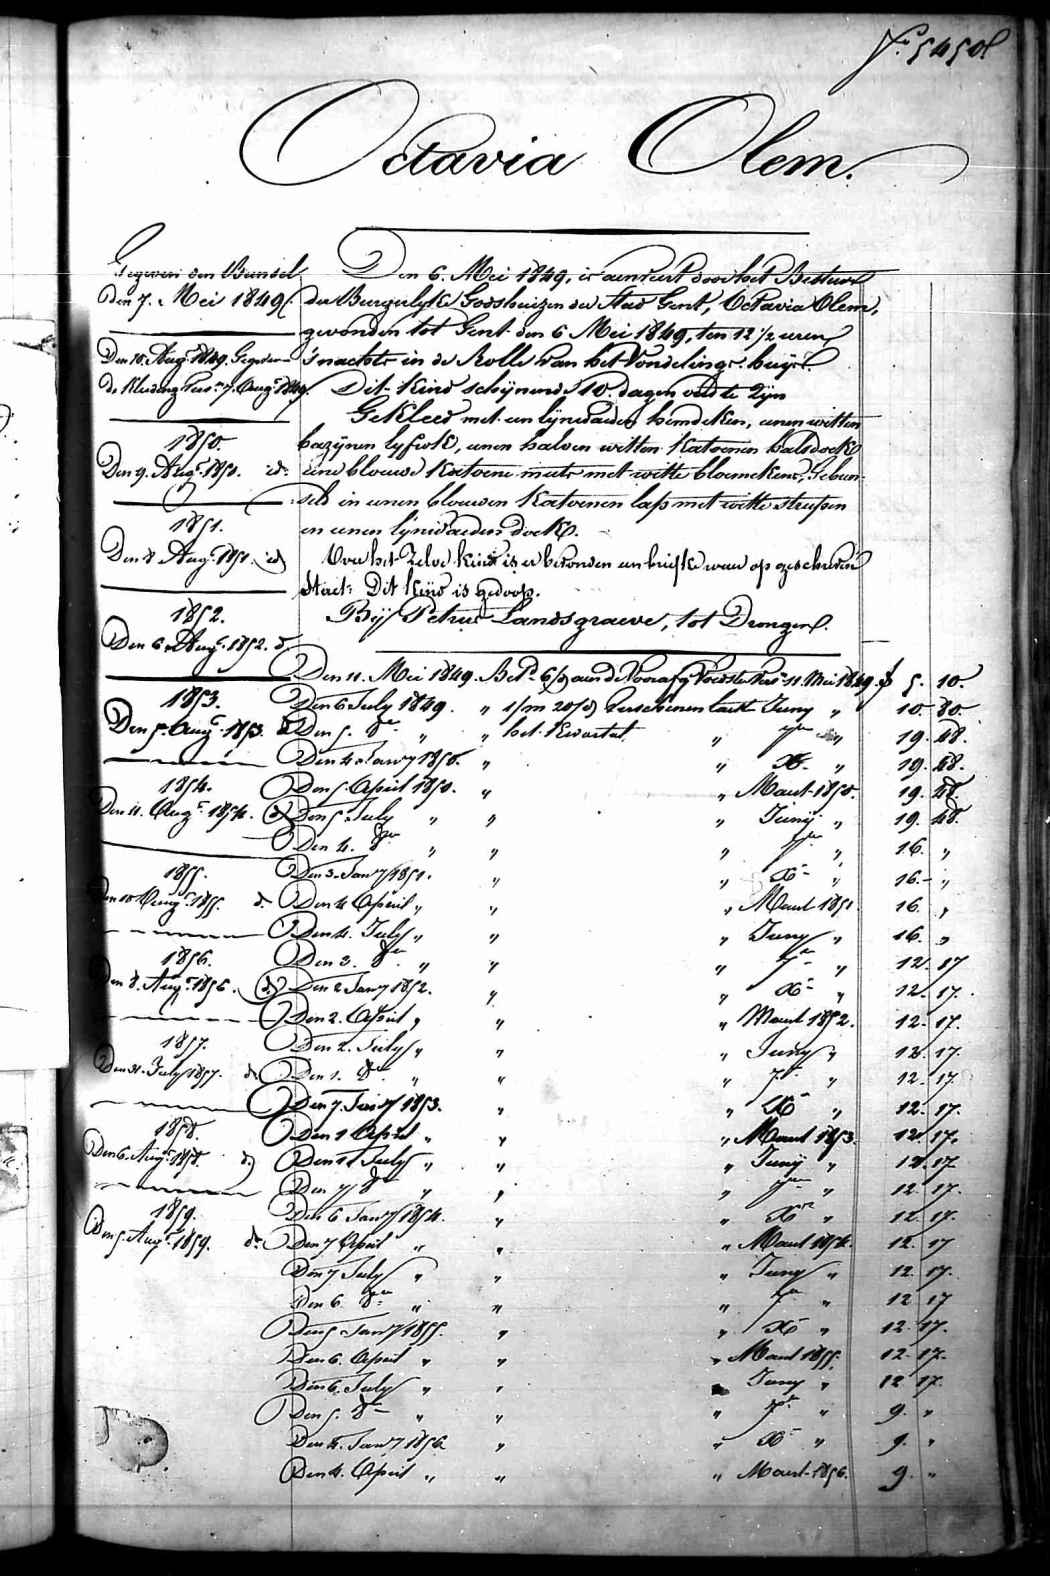 Octavia Olem.
Gegeven den Bundel
den 7. Mei 1849.
Den 10. Aug. 1849. Gegeven
de Kleeding Pers. 7. Aug. 1849.
1850.
Den 9. Aug. 1850. id.
1851.
Den 8 Aug. 1851. id
1852.
Den 6 Aug. 1852. d.
1853.
Den 5. Aug. 1853. d
1854.
Den 11. Aug. 1854. d
1855.
Den 10 Aug. 1855. d.
1856.
Den 8. Aug. 1856. d.
1857.
Den 31. July 1857. d.
1858.
Den 6. Aug. 1858. d.
1859.
Den 5. Aug. 1859. d.
Den 6. Mei 1849, is aenveert door het Bestuur
der Burgerlyke Godshuizen der Stad Gent, Octavia Olem,
gevonden tot Gent den 6 Mei 1849, ten 12 1/2 uren
's nachts in de Rolle van het Vondelings huys.
Dit kind schynend 10. dagen oud te zyn
Gekleed met een lynwaeden hemdeken, eenen witten
bazynen lyfrok, eenen halven witten katoenen halsdoek
eene blouwe katoene muts met witte bloemekens, Gebun-
seld in eenen blouwen katoenen lap met witte streepen
en eenen lynwaeden doek.
Over het zelve kind is er bevonden een briefke waer op geschreven
staet: Dit kind is gedoopt.
Bij Petrus Landsgraeve, tot Drongen.
Den 11. Mei 1849. Bet. 6/ aen de Voorafg Voedster Pers. 11. Mei 1849. f 5. 10.
Den 6 July 1849. " 1/m 20/d verschenen laest Juny " 10. 80.
Den 5. 8er " " het kwartael " 7er " 19. 48.
Den 4. Jany 1850. " " Xr " 19. 48.
Den 5. April 1850. " " Maert 1850. 19. 48.
Den 5. July " " " Juny " 19. 48.
Den 4. 8er " " " 7er " 16. "
Den 3. Jany 1851. " " Xr " 16. "
Den 4 April " " " Maert 1851 16. "
Den 4. July " " " Juny " 16. "
Den 3. 8er " " " 7er " 12. 17
Den 2 Jany 1852. " " Xr " 12. 17.
Den 2. April " " " Maert 1852. 12. 17.
Den 2. July " " " Juny " 12. 17.
Den 1. 8er " " " 7er " 12. 17.
Den 7. Jany 1853. " " Xr " 12. 17.
Den 1 April " " " Maert 1853. 12. 17.
Den 1 July " " " Juny " 12. 17
Den 7 8er " " " 7er " 12. 17.
Den 6 Jany 1854. " " Xr " 12. 17.
Den 7 April " " " Maert 1854. 12. 17
Den 7 July " " " Juny " 12. 17.
Den 6 8er " " " 7er " 12 17
Den 5 Jany 1855. " " Xr " 12. 17.
Den 6. April " " " Maert 1855. 12. 17.
Den 6. July " " " Juny " 12 17.
Den 5. 8er " " " 7er " 9. "
Den 4. Jany 1856 " " Xr " 9. "
Den 4. April " " " Maert 1856. 9. "